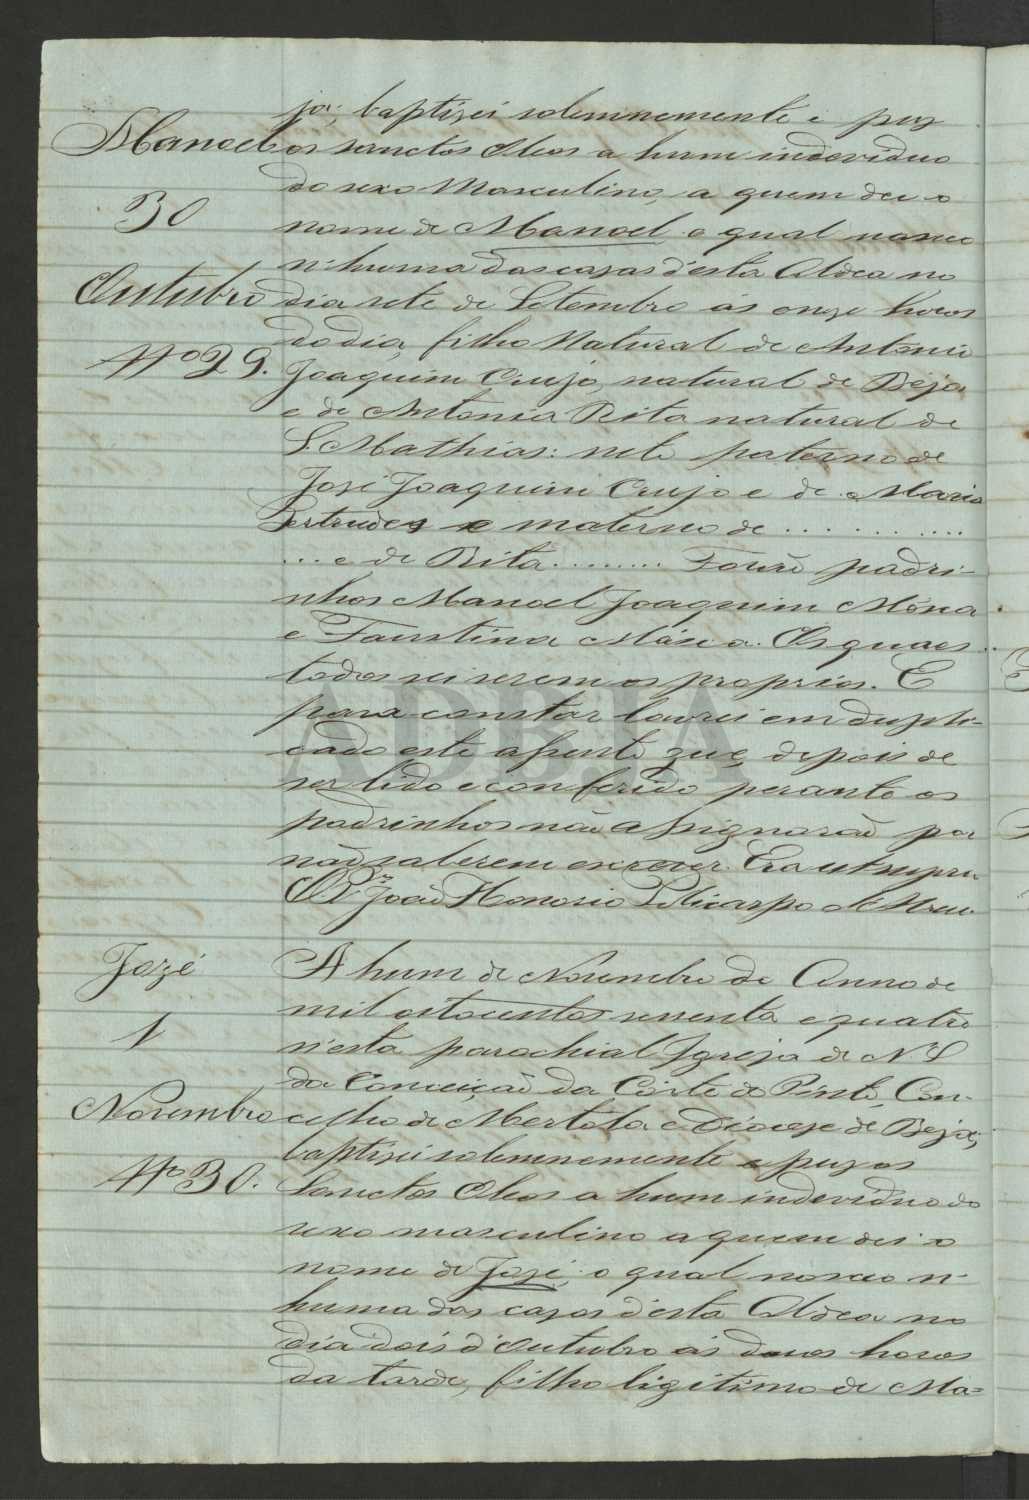 ja; baptizei solemnemente e puz
Manoel
os sanctos Oleos a hum individuo
do sexo Masculino, a quem dei o
30
nome de Manoel o qual nasceo
n'huma das casas d'esta Aldea no
Outubro
dia sete de Setembro ás onze horas
do dia, filho Natural de Antonio
Nº 29.
Joaquim Crujo, natural de Beja
e de Antonia Rita natural de
S. Mathias: neto paterno de
José Joaquim Crujo e de Maria
Gertrudes e materno de ............
... e de Rita ......... Forão padri-
nhos Manoel Joaquim
e Faustina As quaes
todos sei serem os proprios. E
para constar lavrei em dupli-
cado este assento que, depois de
ser lido e conferido perante os
padrinhos não assignarão por
não saberem escrever. Era ut supra
O Pr. João Honorio Policarpo
Jozé
A hum de Novembro do Anno de
mil oitocentos sessenta e quatro
1
n'esta parochial Igreja de N. S.
da Conceição da Corte do Pinto, Con-
Novembro
celho de Mertola e Diocese de Beja;
baptizei solemnemente e puz os
Nº 30.
Sanctos Oleos a hum individuo do
sexo masculino a quem dei o
nome de José; o qual nasceo n'
huma das casas d'esta Aldea no
dia dois d'Outubro ás duas horas
da tarde, filho ligitimo de Ma=
ADBJA